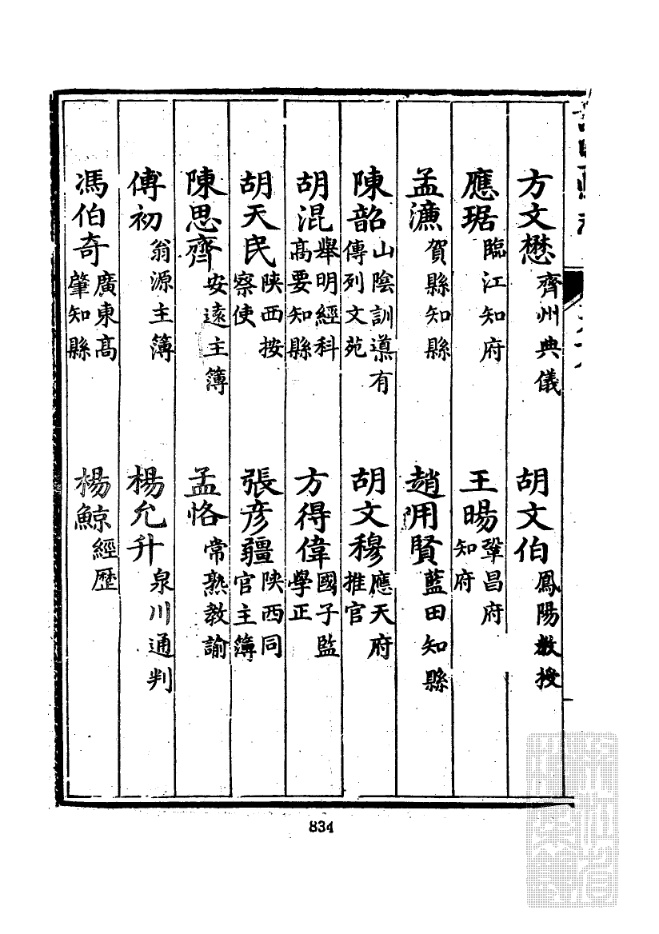 方文懋 齊州典儀 胡文伯 鳳陽教授
應琚 臨江知府 王暘 鞏昌府知府
孟濂 賀縣知縣 趙用賢 藍田知縣
陳韶 山陰訓導有傳列文苑 胡文穆 應天府推官
胡混 舉明經科高要知縣 方得偉 國子監學正
胡天民 陝西按察使 張彥疆 陝西同官主簿
陳思齊 安遠主簿 孟恪 常熟教諭
傅初 翁源主簿 楊允升 泉川通判
馮伯奇 廣東高肇知縣 楊鯨 經歷
834